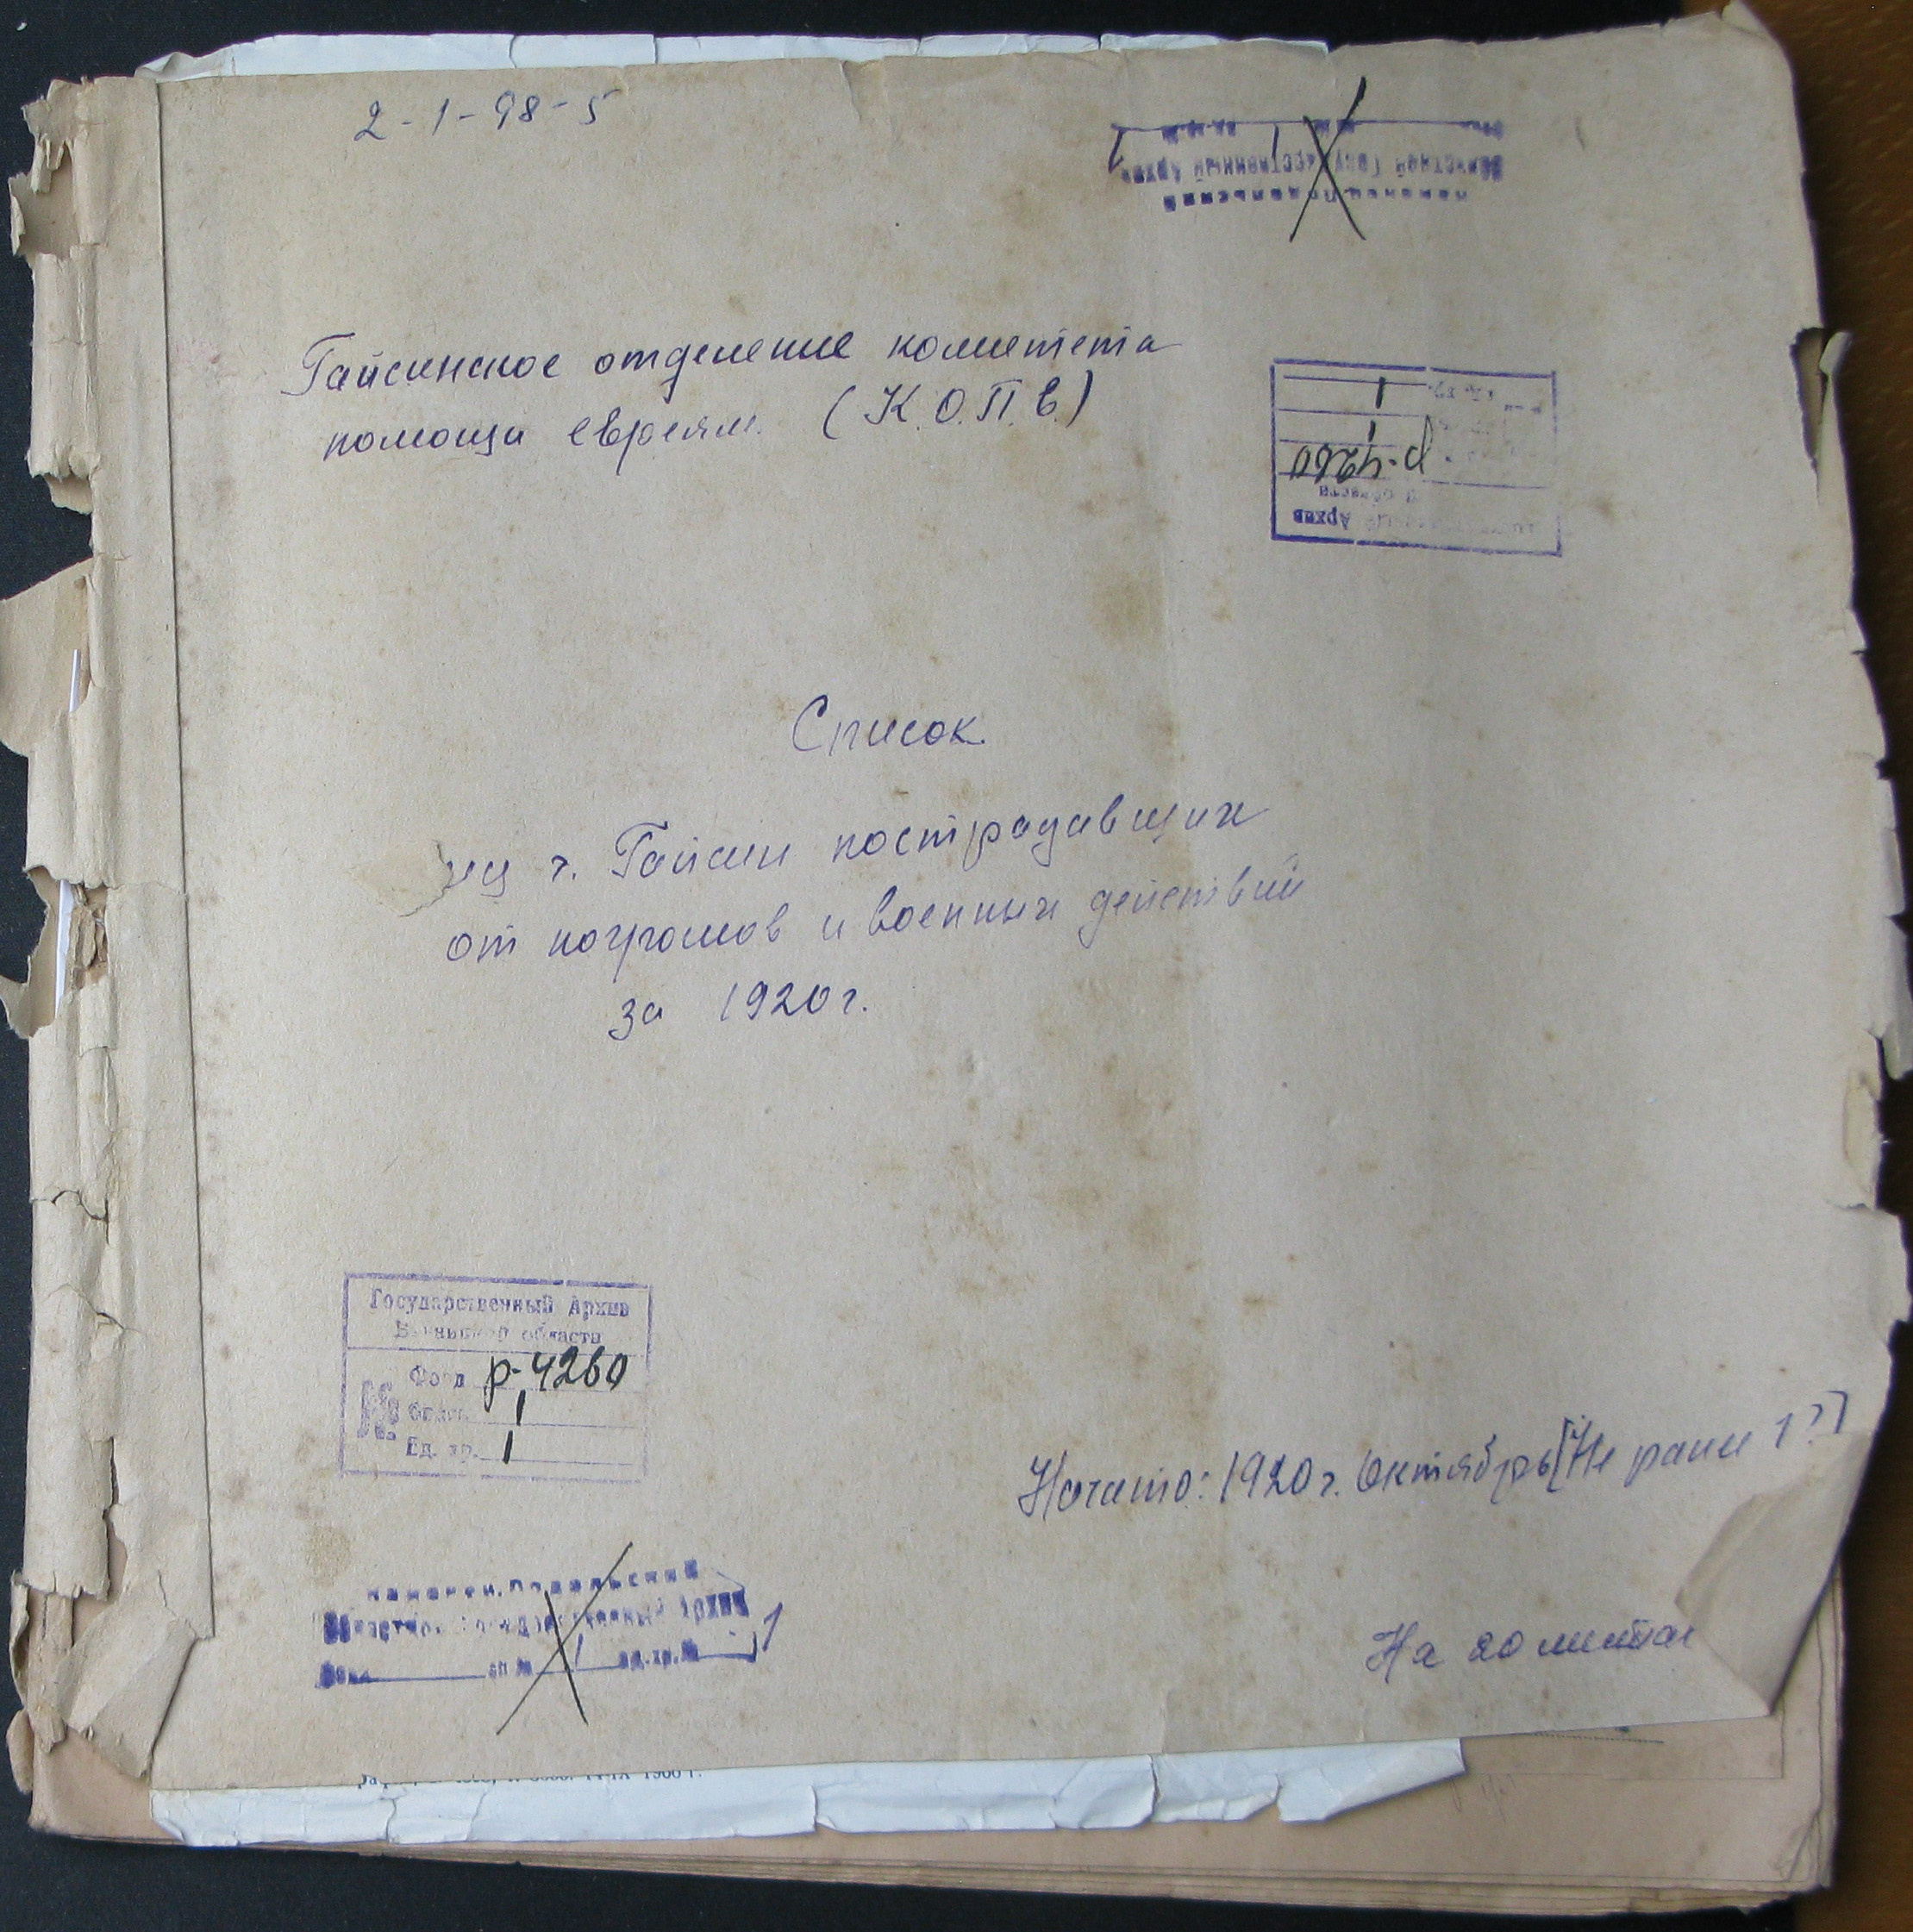 2-1-98-5
Гайсинское отделение комитета
помощи евреям. (К.О.П.Е.)
Р-4260
1
1
Список
лиц г. Гайсин пострадавших
от погромов и военных действий
за 1920 г.
Государственный Архив
Винницкой области
Фонд р-4260
№ Опись 1
Ед. хр. 1
Начато: 1920 г. Октябрь [Не ранее 1?]
Каменец.Подольский
Областной Государственный Архив
Фонд оп № 1 ед.хр.№ 1
На 20 листах
1966 г.